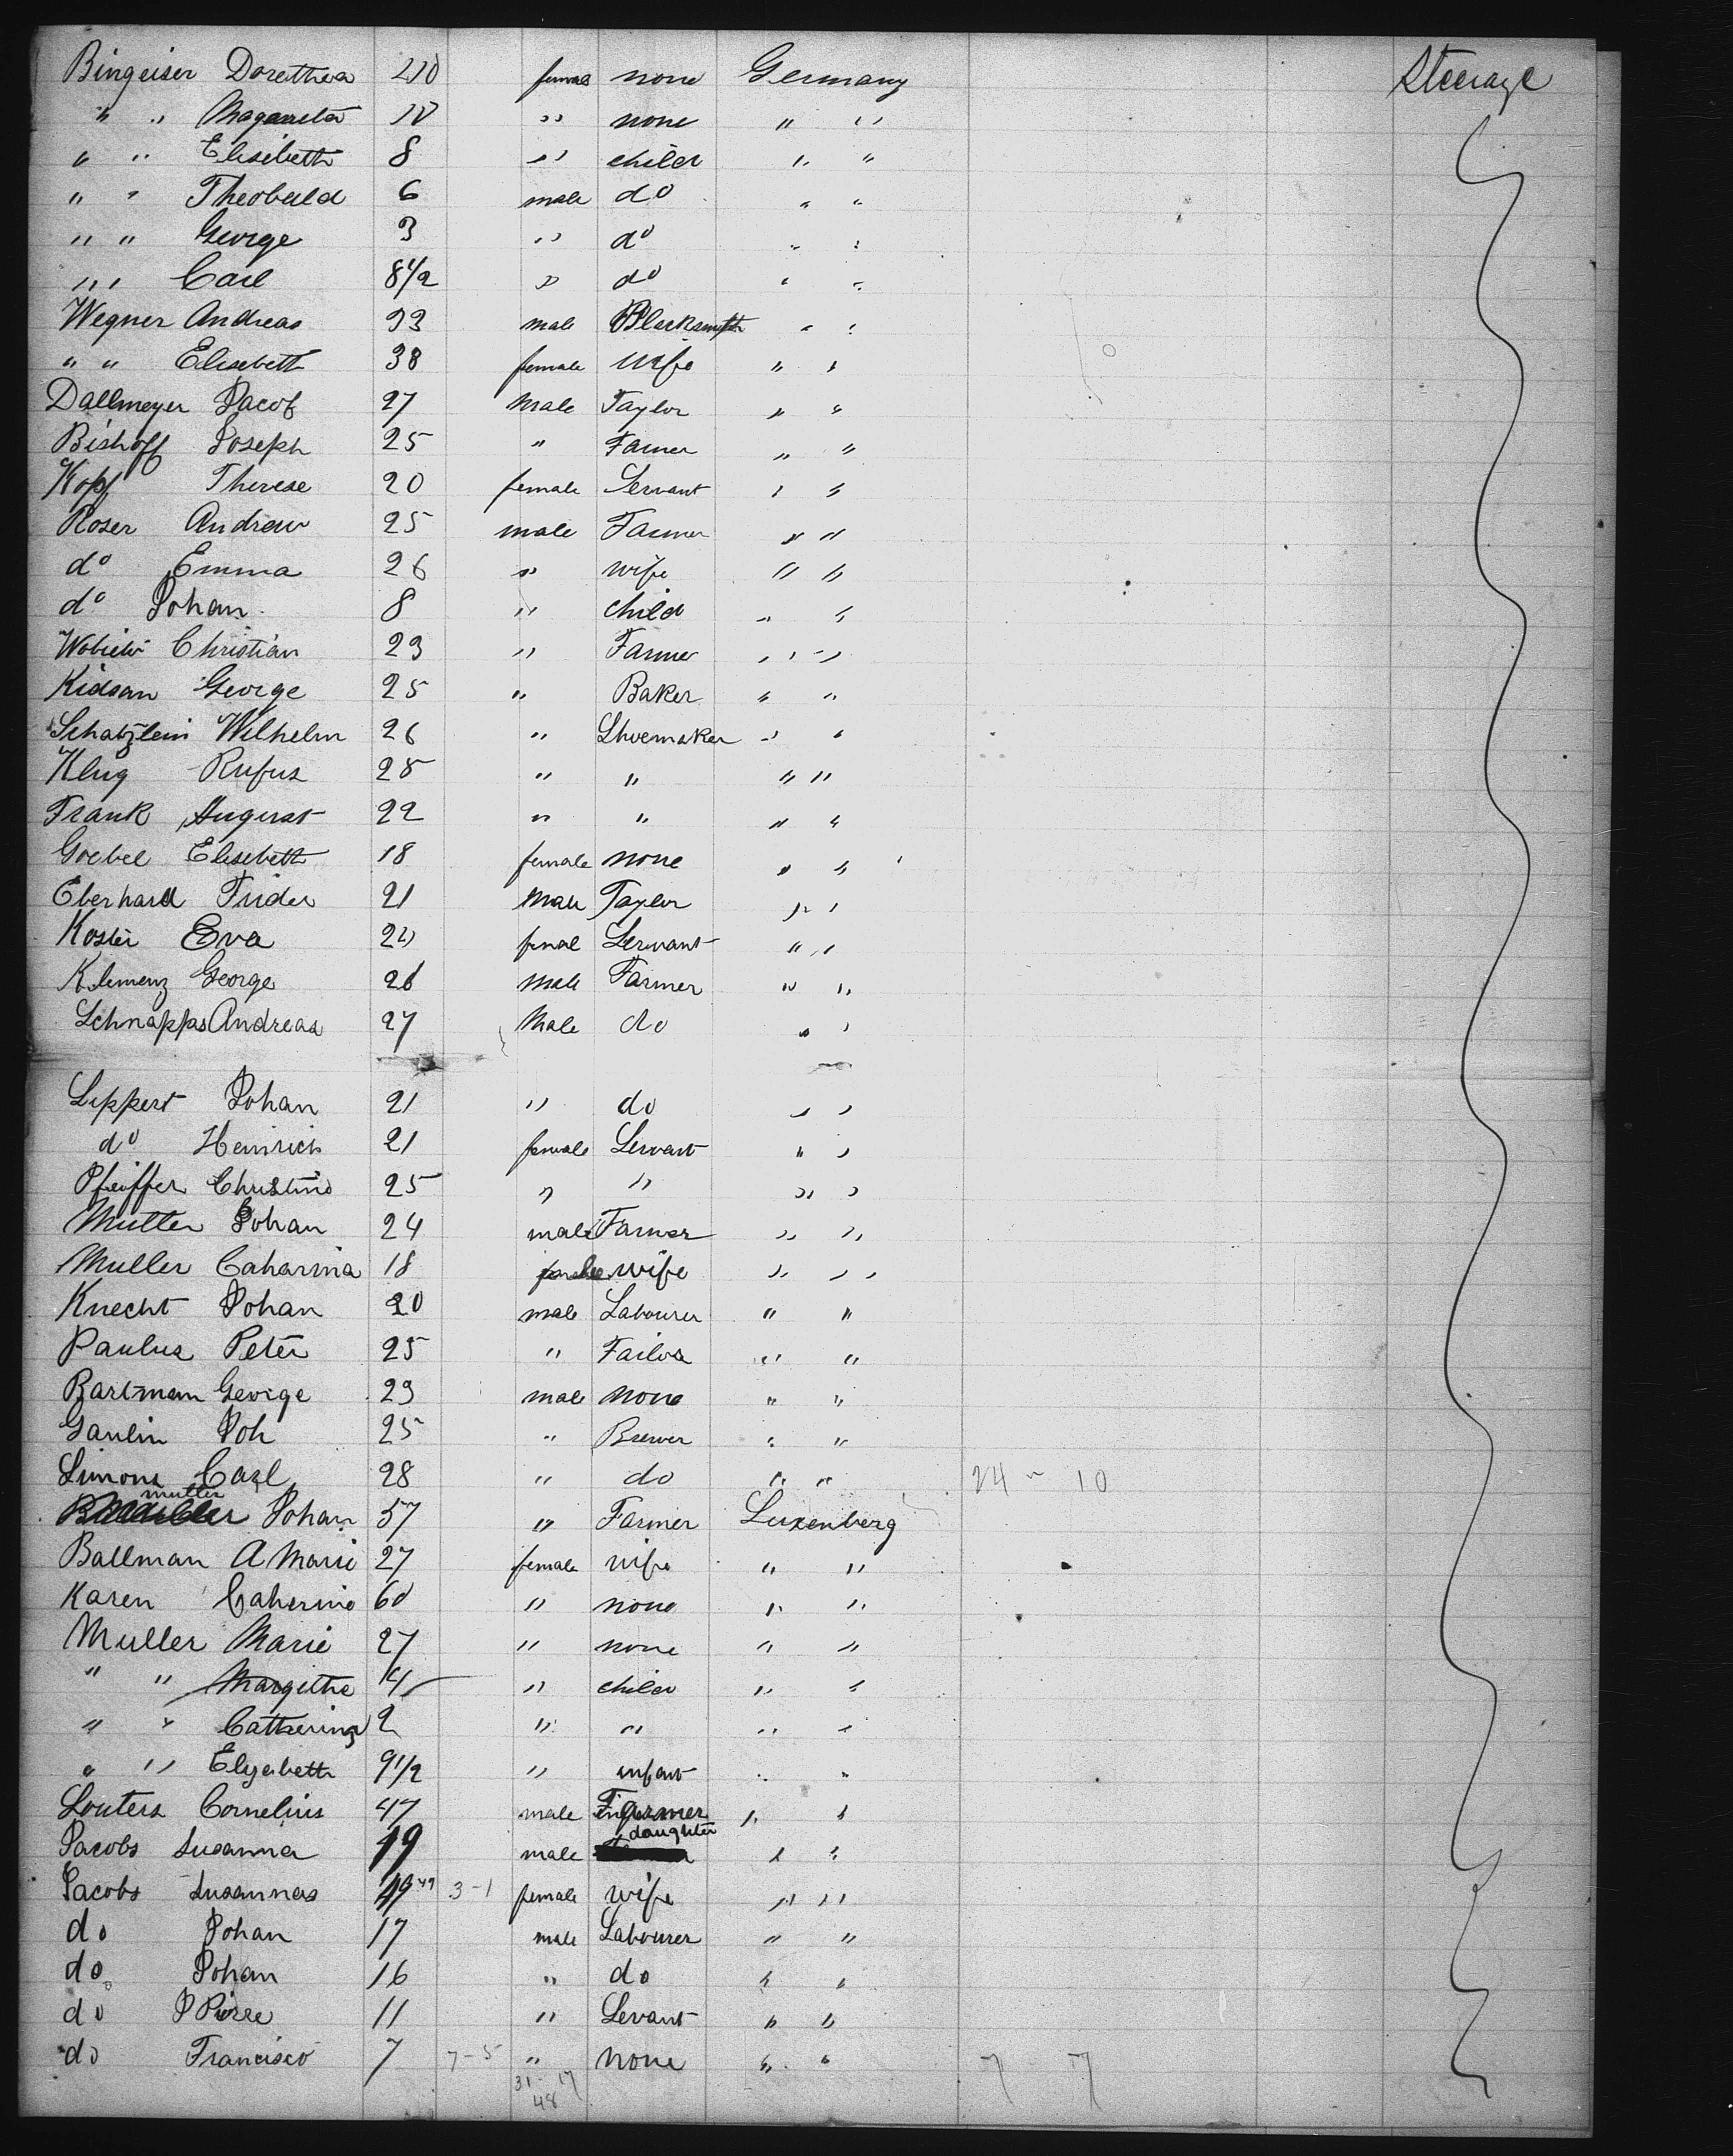 Bingeiser Dorethea 20 female none Germany Steerage
" " Magareta 10 " none " "
" " Elisibeth 8 " child " "
" " Theobald 6 male do " "
" " George 3 " do " "
" " Carl 8 1/2 " do " "
Wegner Andreas 33 male Blacksmith " "
" " Elisebeth 38 female wife " "
Dallmeyer Jacob 27 Male Taylor " "
Bishoff Joseph 25 " Famer " "
Kopf Therese 20 female Servant " "
Roser Andrew 25 male Farmer " "
do Emma 26 " wife " "
do Johan 8 " child " "
Christian 23 " Farmer " "
Kidsan George 25 " Baker " "
Schatzlein Wilhelm 26 " Shoemaker " "
Klug Rufus 28 " " " "
Frank August 22 " " " "
Goebel Elisebeth 18 female none " "
Eberhard 21 Male Taylor " "
Koster Eva 20 femal Servant " "
Klemenz George 26 Male Farmer " "
Schnapps Andreas 27 Male do " "
Lippert Johan 21 " do " "
do Heinrich 21 female Servant " "
Pfeiffer Christine 25 " " " "
Muller Johan 24 male Farmer " "
Muller Caharina 18 female wife " "
Knecht Johan 20 male Labourer " "
Paulus Peter 25 " Tailor " "
Bartman George 23 male none " "
Gaulin Joh 25 " Brewer " "
Simons Carl 28 " do " " 24 " 10
muller
Johan 57 " Farmer Luxenberg
Ballman A Marie 27 female wife " "
Karen Caherine 60 " none " "
Muller Marie 27 " none " "
" " Margithe 4 " child " "
" " Catherina 2 " " " "
" " Elysibeth 9 1/2 " infant " "
Souters Cornelius 47 male Farmer " "
Jacobs Susanna 19 male daughter " "
Jacobs Susannas 49 49 3-1 female wife " "
do Johan 17 male Labourer " "
do Johan 16 " do " "
do J Pierre 11 " Sevant " "
do Francisco 7 7-5 " none " " 7 7
31 - 17
48